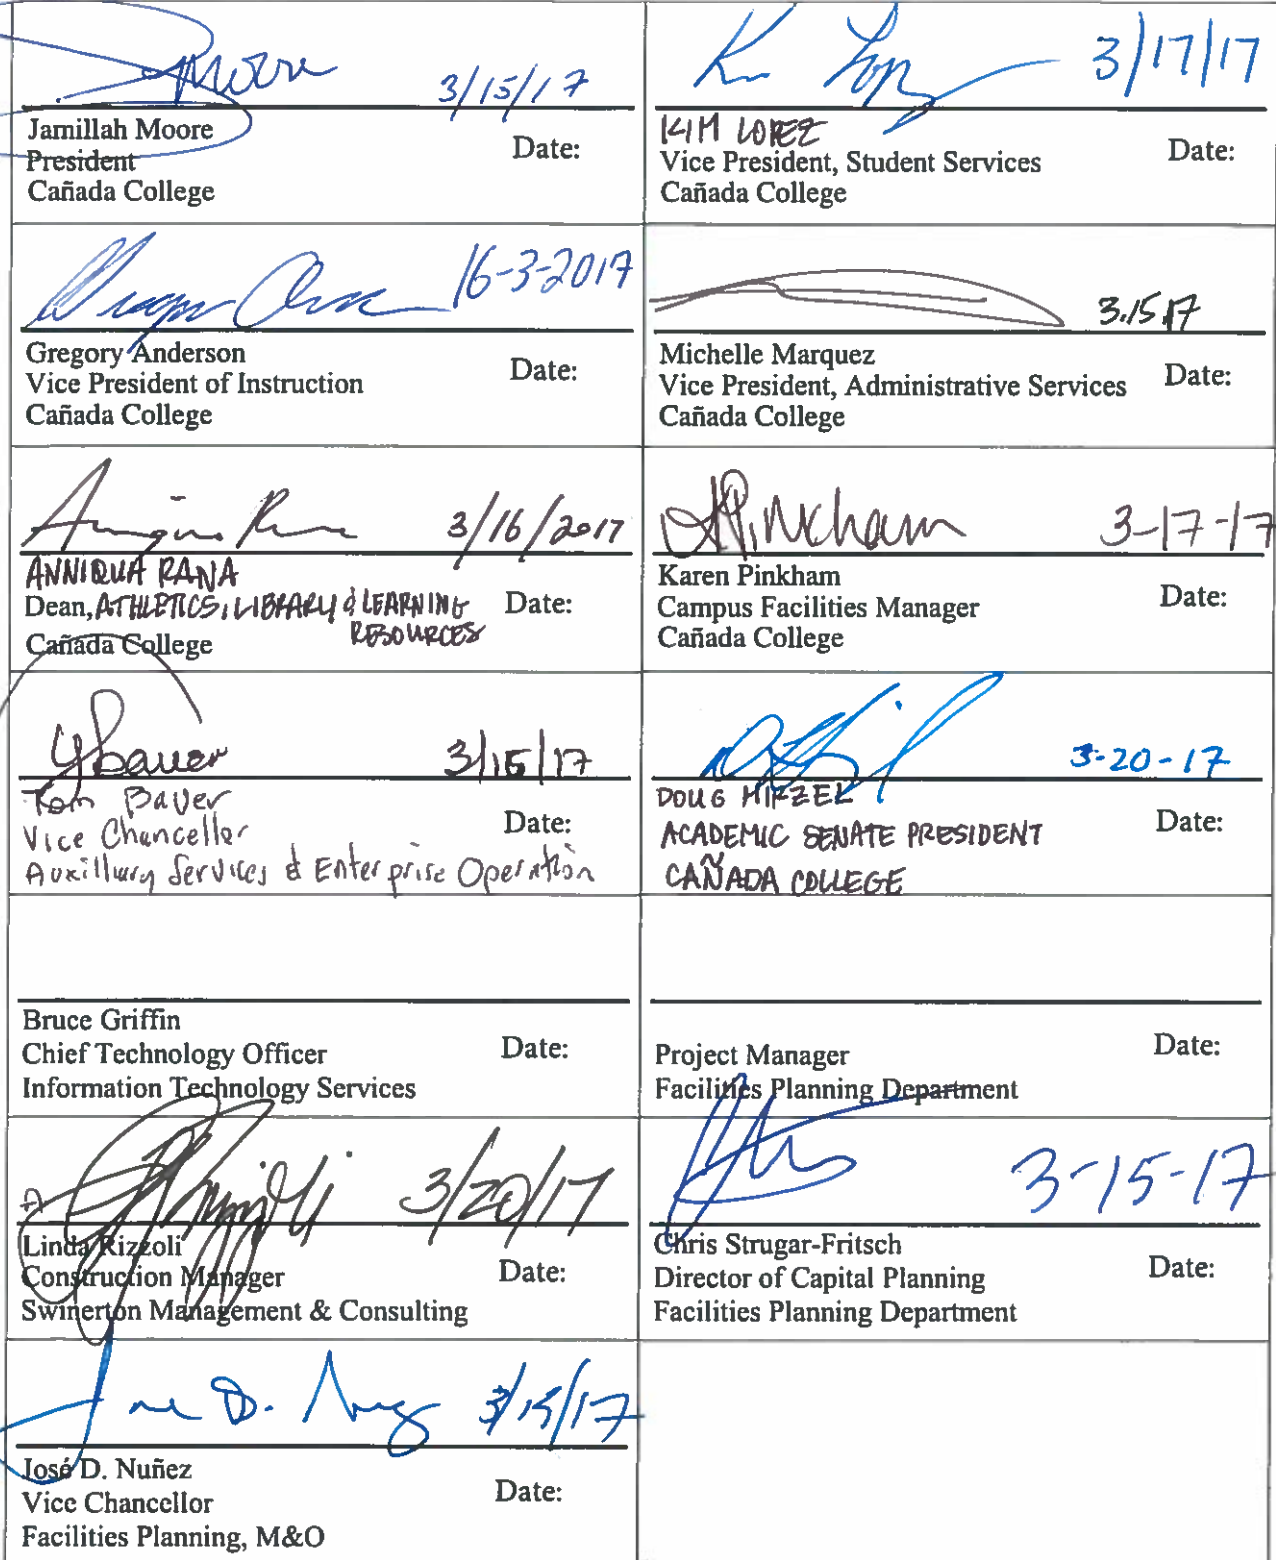 Moore 3/15/17
Jamillah Moore
President Date:
Cañada College
Kim Lopez 3/17/17
KIM LOPEZ
Vice President, Student Services Date:
Cañada College
16-3-2017
Gregory Anderson
Vice President of Instruction Date:
Cañada College
3.15.17
Michelle Marquez
Vice President, Administrative Services Date:
Cañada College
Anniqua Rana 3/16/2017
ANNIQUA RANA
Dean, ATHLETICS, LIBRARY & LEARNING Date:
RESOURCES
Cañada College
KPinkham 3-17-17
Karen Pinkham
Campus Facilities Manager Date:
Cañada College
Bauer 3/15/17
Tom Bauer
Vice Chancellor Date:
Auxillary Services & Enterprise Operation
3-20-17
DOUG HIRZEL
ACADEMIC SENATE PRESIDENT Date:
CAÑADA COLLEGE
Bruce Griffin
Chief Technology Officer Date:
Information Technology Services
Project Manager Date:
Facilities Planning Department
3/20/17
Linda Rizzoli
Construction Manager Date:
Swinerton Management & Consulting
3-15-17
Chris Strugar-Fritsch
Director of Capital Planning Date:
Facilities Planning Department
José D. Nuñez 3/15/17
José D. Nuñez
Vice Chancellor Date:
Facilities Planning, M&O